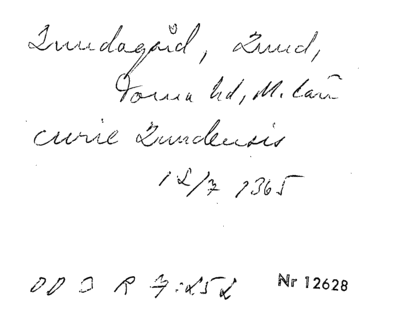 Lundagård, Lund,
Torna hd, M. län
curie Lundensis
12/7 1365
DD 3 R 7:252 Nr 12628